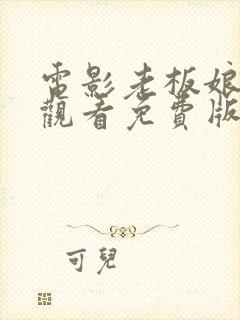 電影老板娘
觀看免費版
可兒